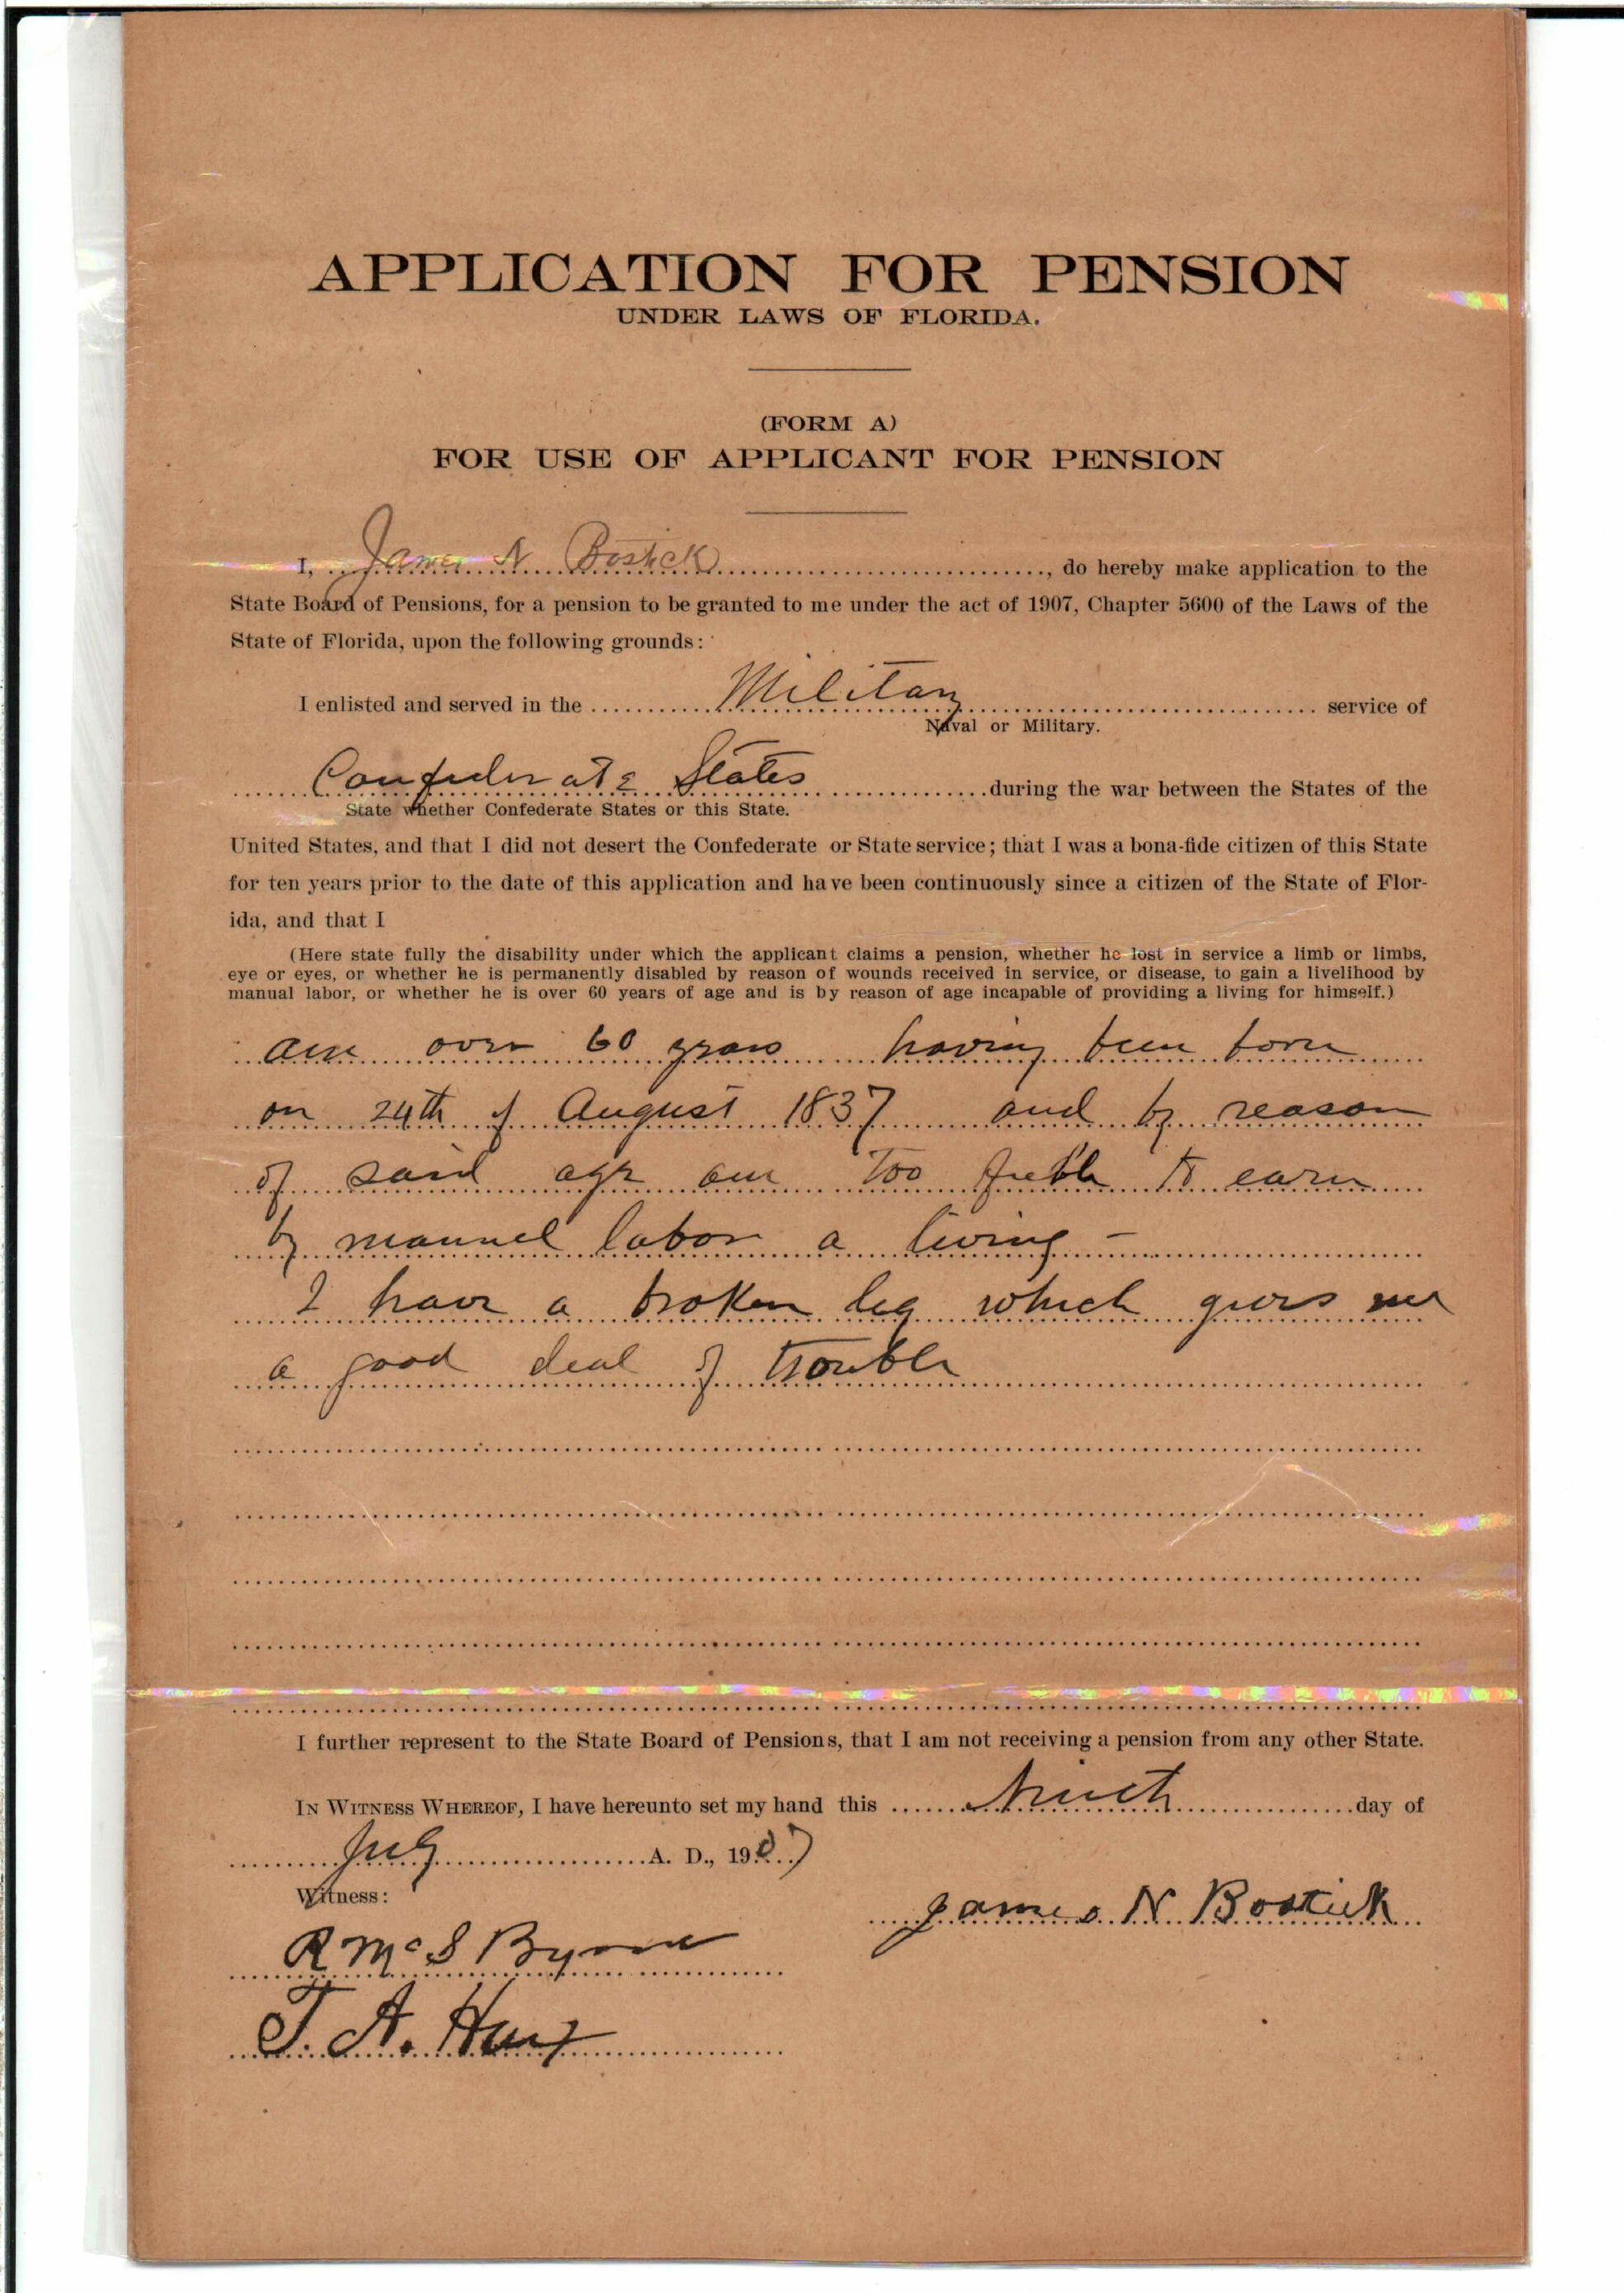 APPLICATION FOR PENSION
UNDER LAWS OF FLORIDA.
(FORM A)
FOR USE OF APPLICANT FOR PENSION
I, James N Bostick, do hereby make application to the
State Board of Pensions, for a pension to be granted to me under the act of 1907, Chapter 5600 of the Laws of the
State of Florida, upon the following grounds:
I enlisted and served in the Military service of
Naval or Military.
Confederate States during the war between the States of the
State whether Confederate States or this State.
United States, and that I did not desert the Confederate or State service; that I was a bona-fide citizen of this State
for ten years prior to the date of this application and have been continuously since a citizen of the State of Flor-
ida, and that I
(Here state fully the disability under which the applicant claims a pension, whether he lost in service a limb or limbs,
eye or eyes, or whether he is permanently disabled by reason of wounds received in service, or disease, to gain a livelihood by
manual labor, or whether he is over 60 years of age and is by reason of age incapable of providing a living for himself.)
am over 60 years having been born
on 24th of August 1837 and by reason
of said age am too feeble to earn
by manuel labor a living -
I have a broken leg which gives me
a good deal of trouble
I further represent to the State Board of Pensions, that I am not receiving a pension from any other State.
IN WITNESS WHEREOF, I have hereunto set my hand this Ninth day of
July A. D., 1907
Witness:
James N Bostick
R McS Byrne
T. A.